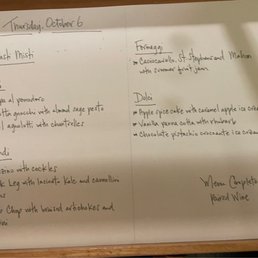 Thursday, October 6
Misti
al pomodoro
gnocchi with almond sage pesto
agnolotti with chanterelles
with cockles
Leg with lacinato kale and cannellini
Chop with braised artichokes and
Formaggi
Caciocavallo, St. Stephens and Mahon
with summer fruit jam
Dolci
Apple spice cake with caramel apple ice cream
Vanilla panna cotta with rhubarb
Chocolate pistachio croccante ice cream
Menu Completo
Paired Wine